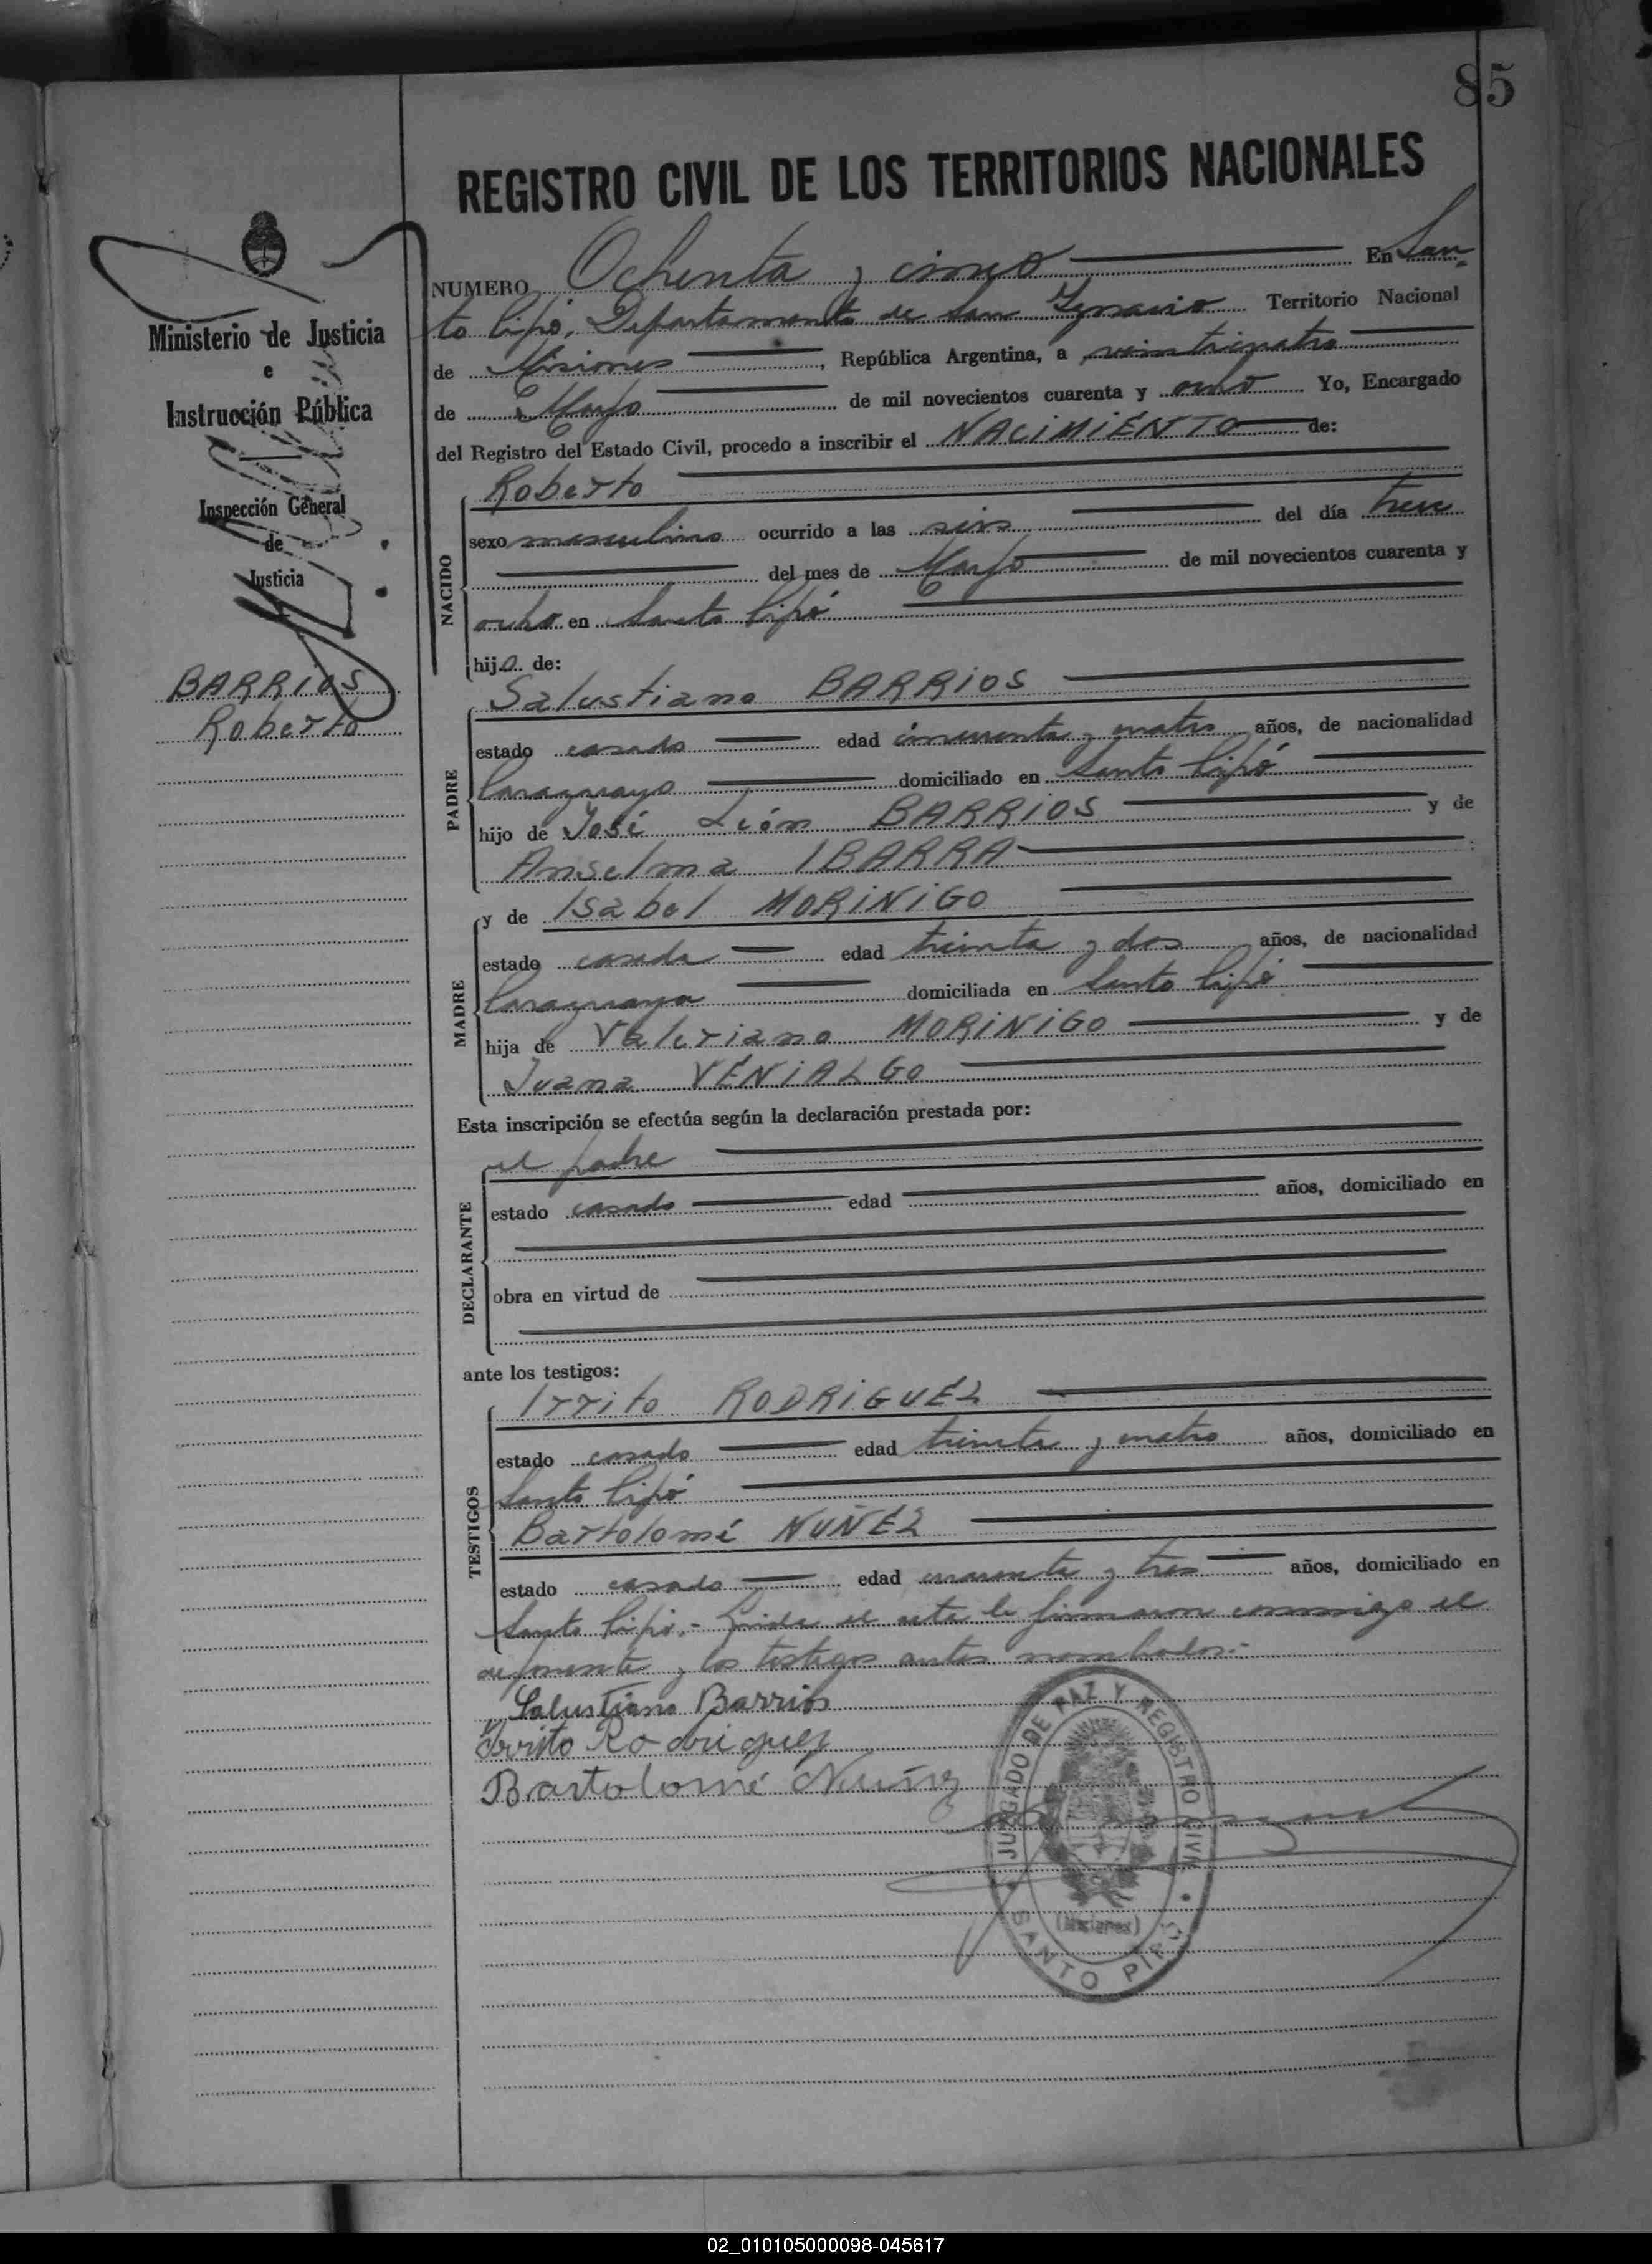 85
REGISTRO CIVIL DE LOS TERRITORIOS NACIONALES
Ministerio de Justicia
e
Instrucción Pública
Inspección General
de
Justicia
BARRIOS
Roberto
NUMERO Ochenta y cinco En San-
to Pipó, Departamento de San Ignacio Territorio Nacional
de Misiones, República Argentina, a veinticuatro
de Marzo de mil novecientos cuarenta y ocho Yo, Encargado
del Registro del Estado Civil, procedo a inscribir el NACIMIENTO de:
NACIDO
Roberto
sexo masculino ocurrido a las seis del día trece
del mes de Marzo de mil novecientos cuarenta y
ocho en Santo Pipó
hijo de:
PADRE
Salustiano BARRIOS
estado casado edad cincuenta y cuatro años, de nacionalidad
Paraguayo domiciliado en Santo Pipó
hijo de José León BARRIOS y de
Anselma IBARRA
MADRE
y de Isabel MORINIGO
estado casada edad treinta y dos años, de nacionalidad
Paraguaya domiciliada en Santo Pipó
hija de Valeriano MORINIGO y de
Juana VENIALGO
Esta inscripción se efectúa según la declaración prestada por:
DECLARANTE
el padre
estado casado edad años, domiciliado en
obra en virtud de
ante los testigos:
TESTIGOS
Irrito RODRIGUEZ
estado casado edad treinta y cuatro años, domiciliado en
Santo Pipó
Bartolomé NUÑEZ
estado casado edad cuarenta y tres años, domiciliado en
Santo Pipó.- Leída el acta la firmaron conmigo el
exponente y los testigos antes nombrados:-
Salustiano Barrios
Irrito Rodriguez
Bartolomé Nuñez
JUZGADO DE PAZ Y REGISTRO CIVIL
(Misiones)
SANTO PIPO
02_010105000098-045617